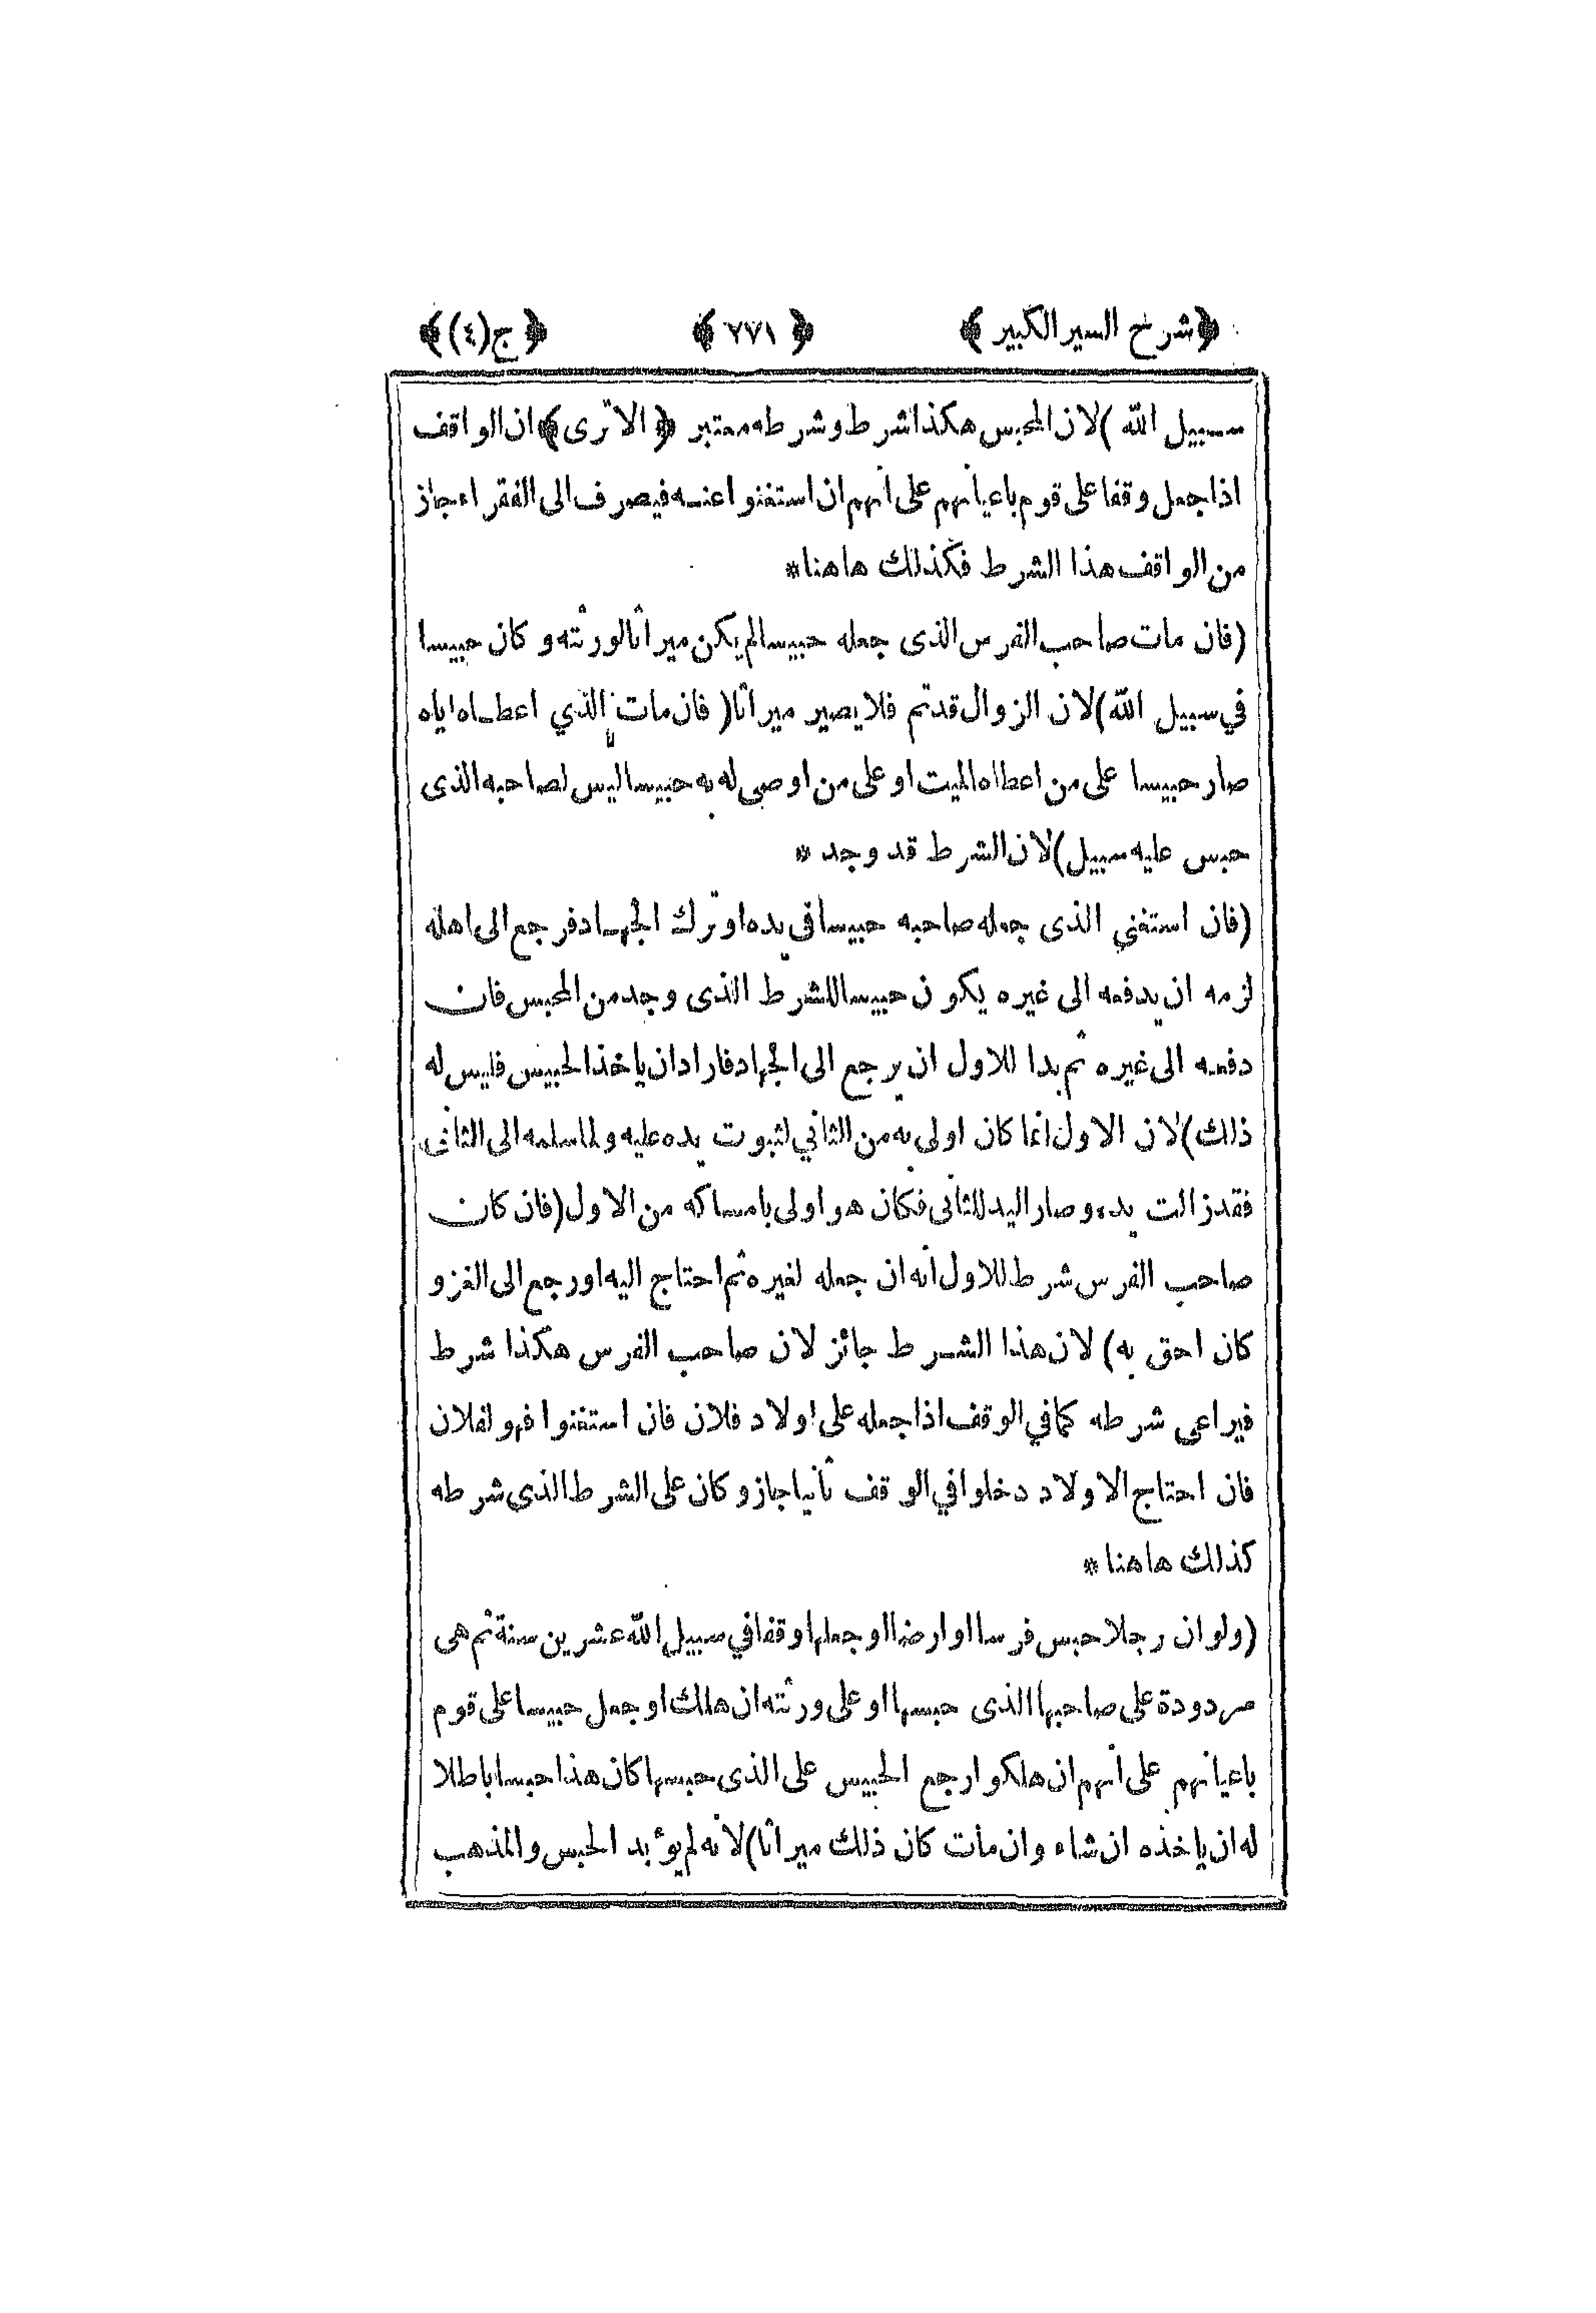 ﴿شرح السير الكبير﴾ ﴿٢٧١﴾ ﴿ج(٤)﴾
سبيل الله) لان المحبس هكذا شرط وشرطه معتبر ﴿الا ترى﴾ ان الواقف
اذا جعل وقفا على قوم باعيانهم على انهم ان استغنوا عنه فيصرف الى الفقراء جاز
من الواقف هذا الشرط فكذلك هاهنا*
(فان مات صاحب الفرس الذى جعله حبيسا لم يكن ميراثا لورثته وكان حبيسا
في سبيل الله) لان الزوال قد تم فلا يصير ميراثا (فان مات الذي اعطاه اياه
صار حبيسا على من اعطاه الميت او على من اوصى له به حبيسا ليس لصاحبه الذى
حبس عليه سبيل) لان الشرط قد وجد *
(فان استغنى الذى جعله صاحبه حبيسا في يده او ترك الجهاد فرجع الى اهله
لزمه ان يدفعه الى غيره يكون حبيسا للشرط الذى وجد من المحبس فان
دفعه الى غيره ثم بدا للاول ان يرجع الى الجهاد فاراد ان ياخذ الحبيس فليس له
ذلك) لان الاول انما كان اولى به من الثاني لثبوت يده عليه ولما سلمه الى الثانى
فقد زالت يده وصار اليد للثانى فكان هو اولى بامساكه من الاول (فان كان
صاحب الفرس شرط للاول انه ان جعله لغيره ثم احتاج اليه او رجع الى الغزو
كان احق به) لان هذا الشرط جائز لان صاحب الفرس هكذا شرط
فيراعى شرطه كما في الوقف اذا جعله على اولاد فلان فان استغنوا فهو لفلان
فان احتاج الاولاد دخلوا في الوقف ثانيا جاز وكان على الشرط الذى شرطه
كذلك هاهنا *
(ولو ان رجلا حبس فرسا او ارضا او جعلها وقفا في سبيل الله عشرين سنة ثم هى
مردودة على صاحبها الذى حبسها او على ورثته ان هلك او جعل حبيسا على قوم
باعيانهم على انهم ان هلكوا رجع الحبيس على الذى حبسها كان هذا حبسا باطلا
له ان ياخذه ان شاء وان مات كان ذلك ميراثا) لانه لم يؤبد الحبس والمذهب